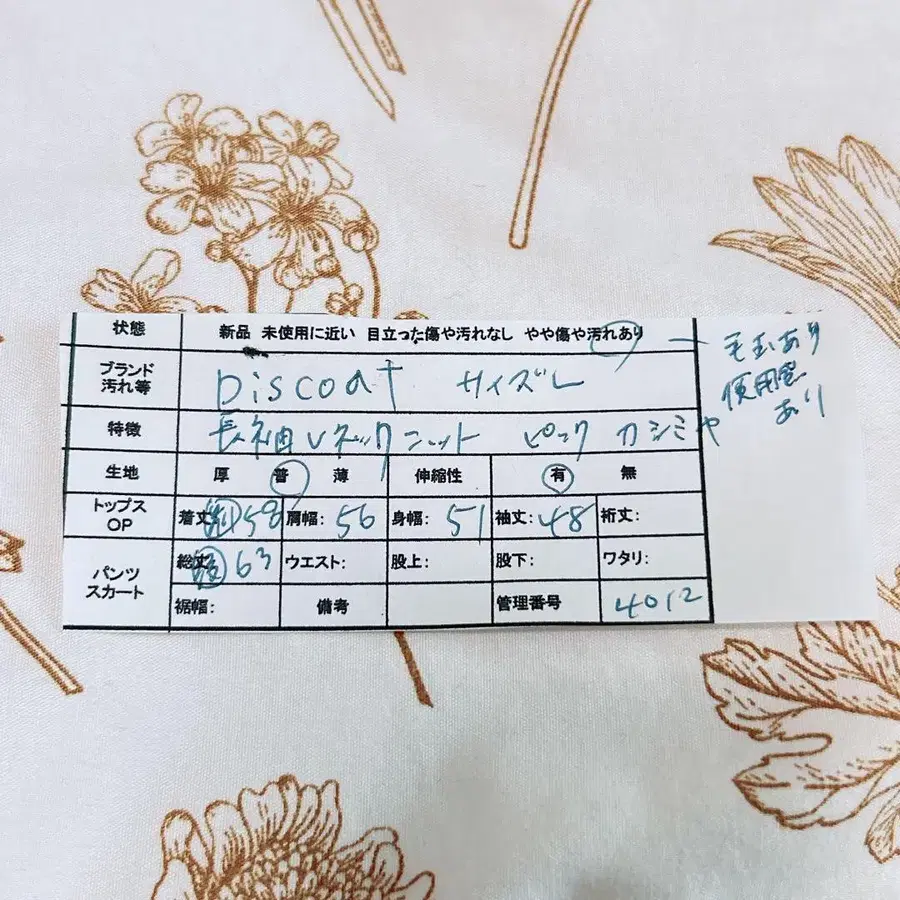 状態 新品 未使用に近い 目立った傷や汚れなし やや傷や汚れあり 毛玉あり
使用感
あり
ブランド
汚れ等 Discoat サイズL
特徴 長袖Vネックニット ピンク カシミヤ
生地 厚 普 薄 伸縮性 有 無
トップス
OP 着丈: 前 58 肩幅: 56 身幅: 51 袖丈: 48 裄丈:
パンツ
スカート 総丈: 後 63 ウエスト: 股上: 股下: ワタリ:
裾幅: 備考 管理番号 4012